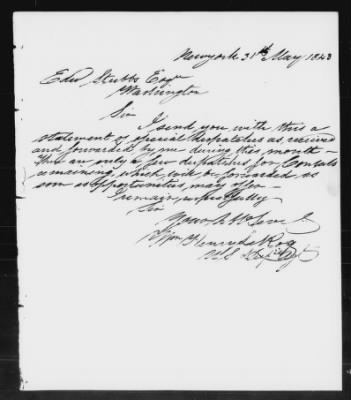 Newyork 31st May 1843
Edw Stubbs Esqr
Washington
Sir
I send you with this a
statement of special despatches as received
and forwarded by me during this month —
there are only a few despatches for Consuls
remaining which will be forwarded as
soon as opportunities may offer —
I remain respectfully
Sir
Your Ob Serv
Wm Henry
U S Agt